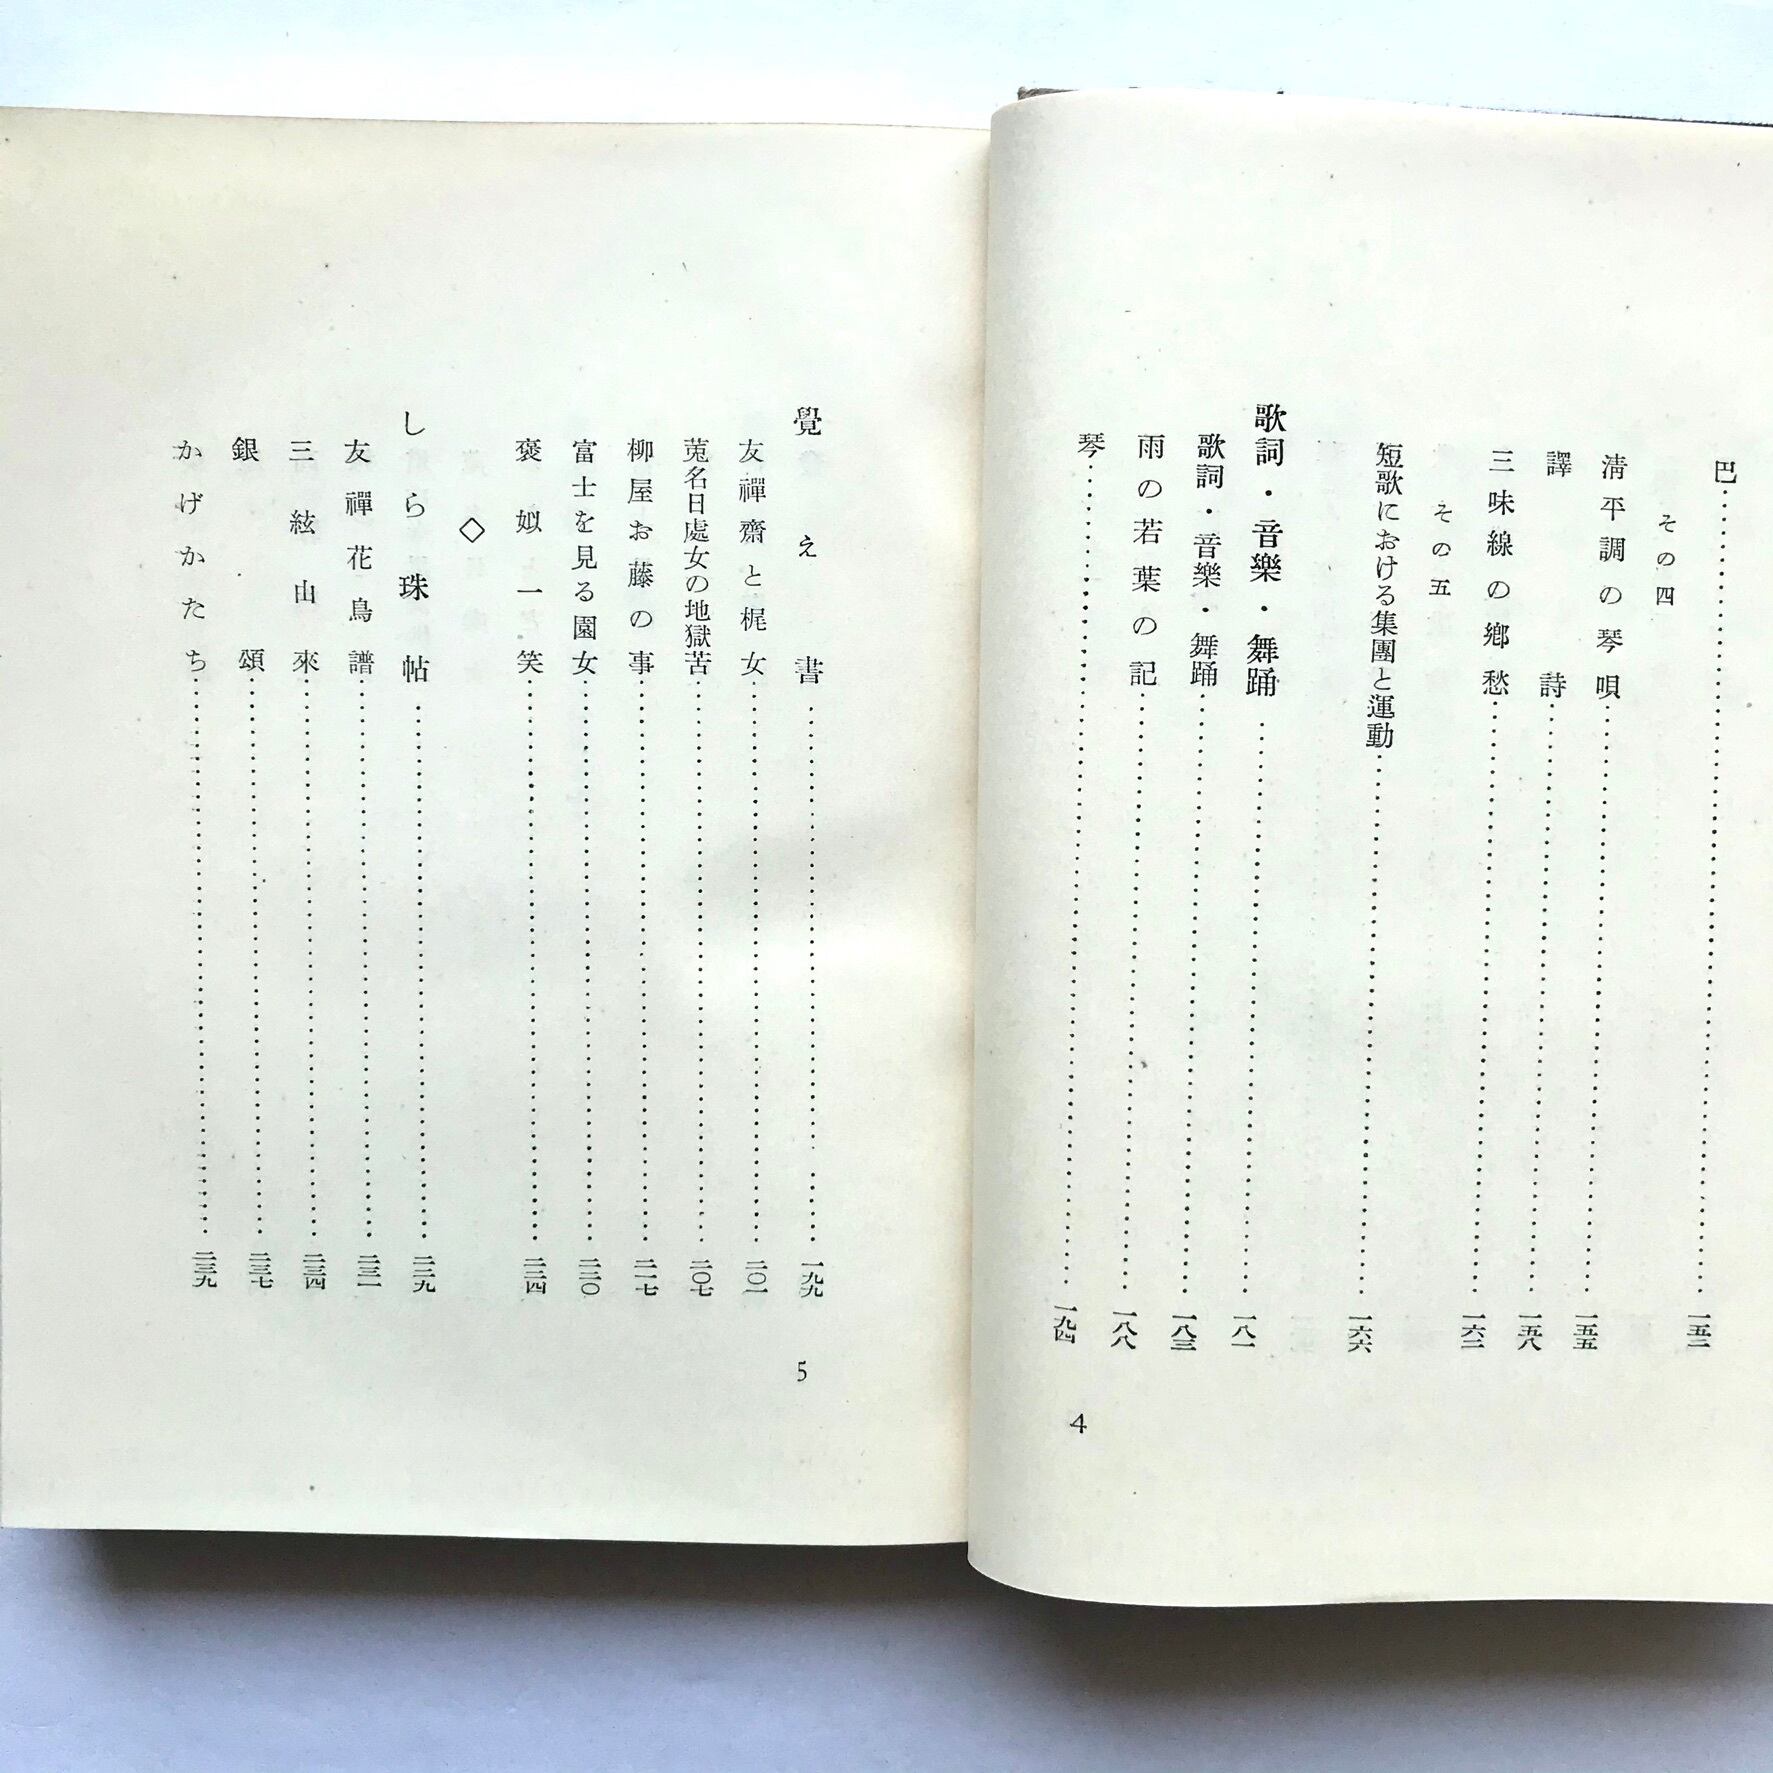 巴……一五二
その四
淸平調の琴唄……一五五
譯詩……一五八
三味線の鄕愁……一六二
その五
短歌における集團と運動……一六六
歌詞・音樂・舞踊……一八一
歌詞・音樂・舞踊……一八三
雨の若葉の記……一八八
琴……一九四
4
覺え書……一九九
友禪齋と梶女……二〇一
菟名日處女の地獄苦……二〇七
柳屋お藤の事……二一七
富士を見る園女……二二〇
褒姒一笑……二二四
◇
しら珠帖……二二九
友禪花鳥譜……二三一
三絃山來……二三四
銀頌……二三七
かげかたち……二三九
5